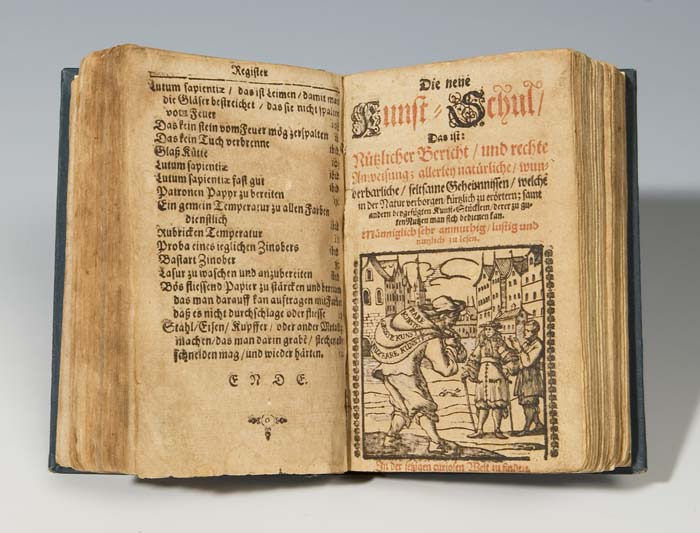 Register
Lutum sapientiæ / das ist Leimen / damit man
die Gläser bestreichet / das sie nicht spalten
vom Feuer
Das kein stein vom Feuer mög zerspalten
Das kein Tuch verbrenne
Glaß Kütte
Lutum sapientiæ
Lutum sapientiæ fast gut
Patronen Papyr zu bereiten
Ein gemein Temperatur zu allen Farben
dienstlich
Rubricken Temperatur
Proba eines jeglichen Zinobers
Bastart Zinober
Lasur zu waschen und anzubereiten
Bös fliessend Papier zu stärcken und
das man darauff kan auftragen mit Farben
daß es nicht durchschlage oder fliesse
Stahl / Eisen / Kupffer / oder ander Metall
machen / das man darin grabe / stechen
schneiden mag / und wieder härten.
ENDE.
Die neue
Kunst-Schul /
Das ist:
Nützlicher Bericht / und rechte
Anweisung allerley natürliche / wun-
derbarliche / seltsame Geheimnissen / welche
in der Natur verborgen kürtzlich zu erörtern; samt
andern beygefügten Kunst-Stücklein / derer zu gu-
ten Nutzen man sich bedienen kan.
Männiglich sehr anmuthig / lustig und
nützlich zu lesen.
KUNST
KUNST
In der jetzigen curiosen Welt zu finden.